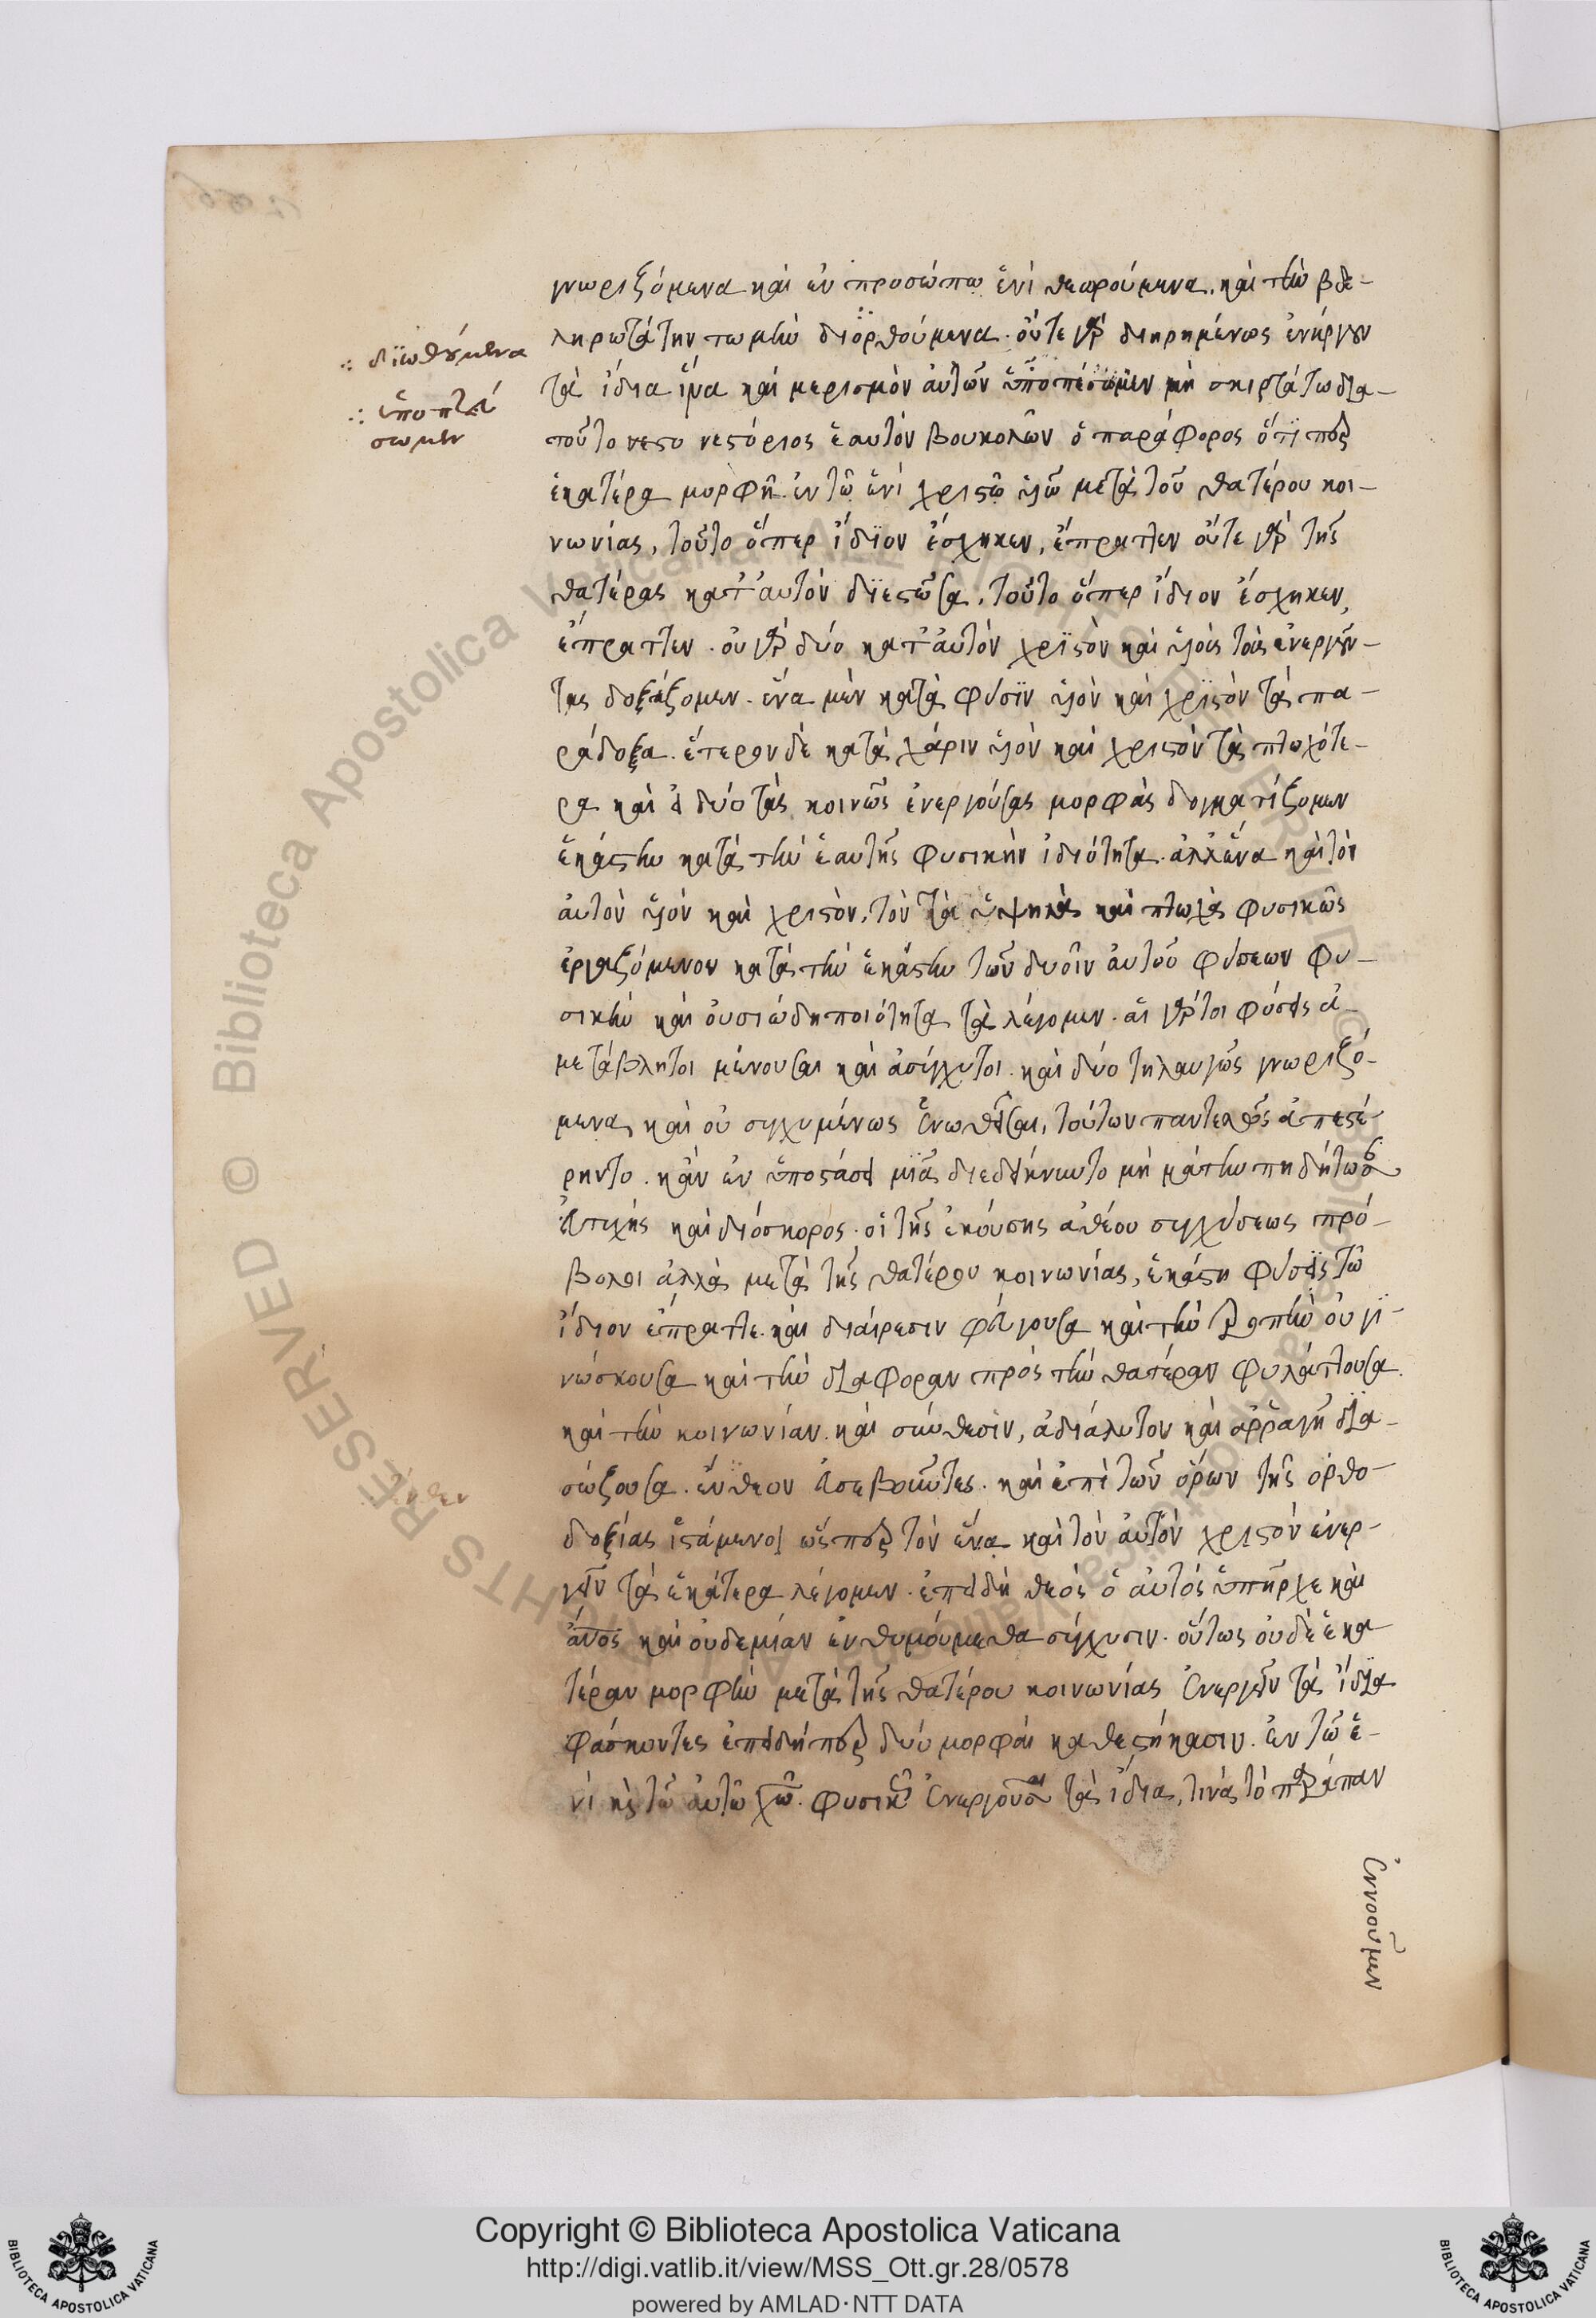 γνωριζόμενα καὶ ἐν προσώπω ἑνὶ θεωρούμενα. καὶ τὴν βδε-
∴ διϊωθούμενα
λυρωτάτην τομὴν διορθούμενα. οὔτε γὰρ διηρημένως ἐνήργουν
τὰ ἴδια ἵνα καὶ μερισμὸν αὐτῶν ὑποπέσωμεν μὴ σκιρτάτω δια-
∴ ὑποπτεύ
σωμεν
τοῦτο νεστόριος ἑαυτὸν βουκολῶν ὁ παράφορος ὅτι περ
ἑκατέρα μορφὴ ἐν τῶ ἑνὶ χριστῶ υἱῶ μετὰ τοῦ θατέρου κοι-
νωνίας, τοῦτο ὅπερ ἴδιον ἔσχηκεν, ἔπραττεν οὔτε γὰρ τῆς
θατέρας κατ' αὐτὸν διεστῶσα, τοῦτο ὅπερ ἴδιον ἔσχηκεν,
ἔπραττεν. οὐ γὰρ δύο κατ' αὐτὸν χριστὸν καὶ υἱοὺς τοὺς ἐνεργοῦν-
τας δοξάζομεν. ἕνα μὲν κατὰ φύσιν υἱὸν καὶ χριστὸν τὰ πα-
ράδοξα. ἕτερον δὲ κατὰ χάριν υἱὸν καὶ χριστὸν τὰ πτωχότε-
ρα καὶ εἰ δύο τὰς κοινῶς ἐνεργούσας μορφὰς δογματίζομεν
ἑκάστην κατὰ τὴν ἑαυτῆς φυσικὴν ἰδιότητα. ἀλλ' ἕνα καὶ τὸν
αὐτὸν υἱὸν καὶ χριστὸν, τὸν τὰ ὑψηλὰ καὶ πτωχὰ φυσικῶς
ἐργαζόμενον κατὰ τὴν ἑκάστην τῶν δυοῖν αὐτοῦ φύσεων φυ-
σικὴν καὶ οὐσιώδη ποιότητα τὰ λέγομεν. αἵ γάρ τοι φύσεις ἀ-
μετάβλητοι μένουσαι καὶ ἀσύγχυτοι. καὶ δύο τηλαυγῶς γνωριζό-
μεναι καὶ οὐ συγχυμένως ἑνωθεῖσαι, τούτων παντελῶς ἀπεστέ-
ρηντο. κἂν ἐν ὑποστάσει μιᾷ διεδείκνυντο μὴ μάτην πηδήτωσαν
εὐτυχὴς καὶ διόσκορος. οἱ τῆς ἐκούσης ἀθέου συγχύσεως πρό-
βολοι ἀλλὰ μετὰ τῆς θατέρου κοινωνίας, ἑκάστη φύσις τὸ
ἴδιον ἔπραττε. καὶ διαίρεσιν φεύγουσα καὶ τὴν τροπὴν οὐ γι-
νώσκουσα καὶ τὴν διαφορὰν πρὸς τὴν θατέραν φυλάττουσα.
καὶ τὴν κοινωνίαν. καὶ σύνθεσιν, ἀδιάλυτον καὶ ἀρραγῆ δια-
σώζουσα. ἔνθεον εὐσεβοῦντες. καὶ ἐπὶ τῶν ὅρων τῆς ὀρθο-
ἔνθεν
δοξίας ἱστάμενοι ὥσπερ τὸν ἕνα καὶ τὸν αὐτὸν χριστὸν ἐνερ-
γεῖν τὰ ἑκάτερα λέγομεν. ἐπειδὴ θεὸς ὁ αὐτὸς ὑπῆρχε καὶ
ἄνος καὶ οὐδεμίαν ἐνθυμούμεθα σύγχυσιν. οὕτως οὐδὲ ἑκα-
τέραν μορφὴν μετὰ τῆς θατέρου κοινωνίας ἐνεργεῖν τὰ ἴδια
φάσκοντες ἐπειδήπερ δύο μορφαὶ καθεστήκασιν. ἐν τῶ ἑ-
νὶ καὶ τῶ αὐτῶ χῶ. φυσικῶς ἐνεργοῦσαι τὰ ἴδια, τινὰ τὸ παράπαν
ἐννοοῦμεν